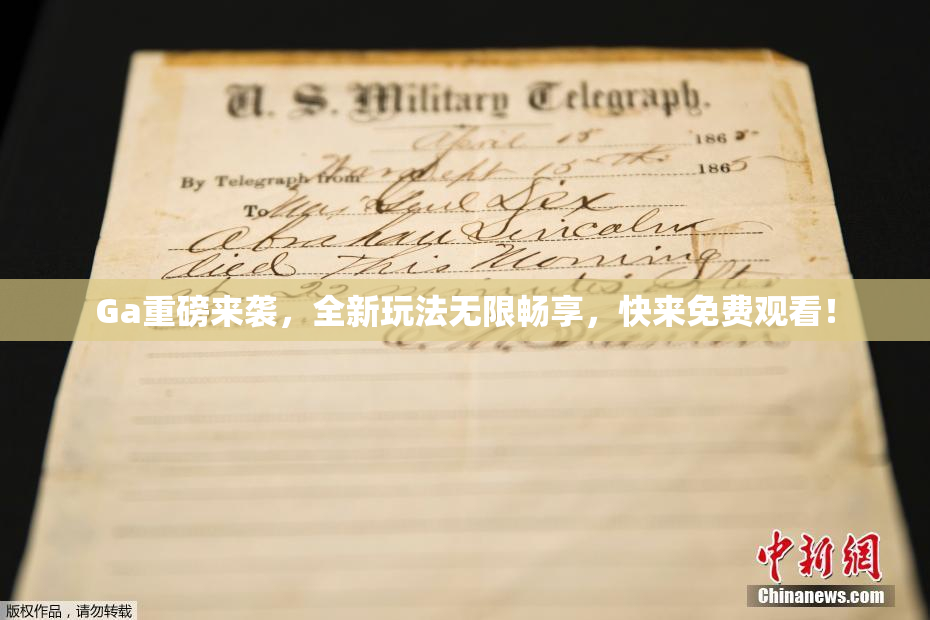 U. S. Military Telegraph.
April 15 1865
By Telegraph from War Dept 15th 1865
To Maj Genl Dix
Abraham Lincoln
died This Morning
at 22 minutes after
Ga重磅来袭，全新玩法无限畅享，快来免费观看！
E. M. Stanton
中新网
Chinanews.com
版权作品，请勿转载